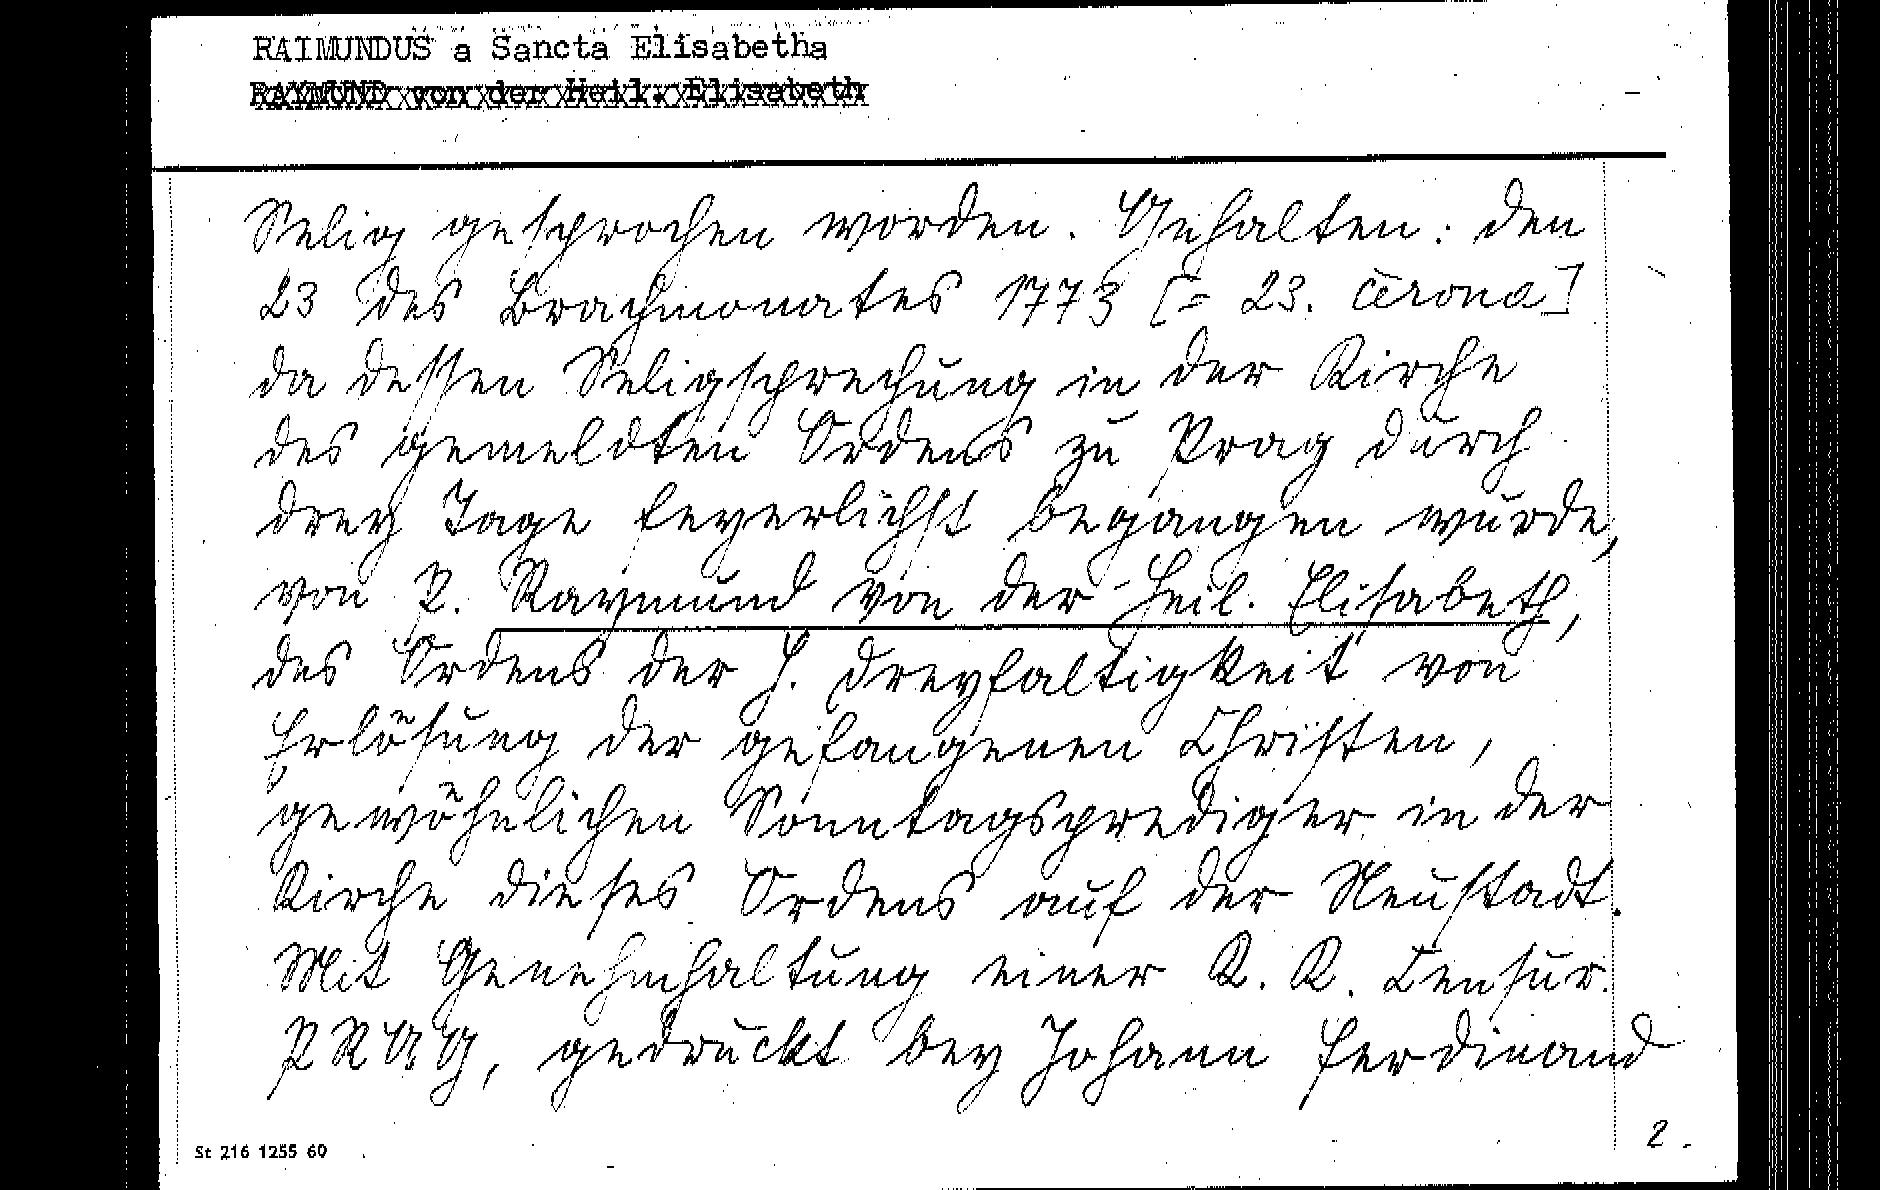 RAIMUNDUS a Sancta Elisabetha
RAYMUND von der Heil. Elisabeth
Selig gesprochen worden. Gehalten: den
23 des Brachmonates 1773 [= 23. června]
da dessen Seligsprechung in der Kirche
des gemeldten Ordens zu Prag durch
drey Tage feyerlichst begangen wurde,
von P. Raymund von der Heil. Elisabeth,
des Ordens der H. Dreyfaltigkeit von
Erlösung der gefangenen Christen,
gewöhnlichen Sonntagsprediger in der
Kirche dieses Ordens auf der Neustadt.
Mit Genehmhaltung einer K. K. Censur.
PRAG, gedruckt bey Johann Ferdinand
2.
St 216 1255 60